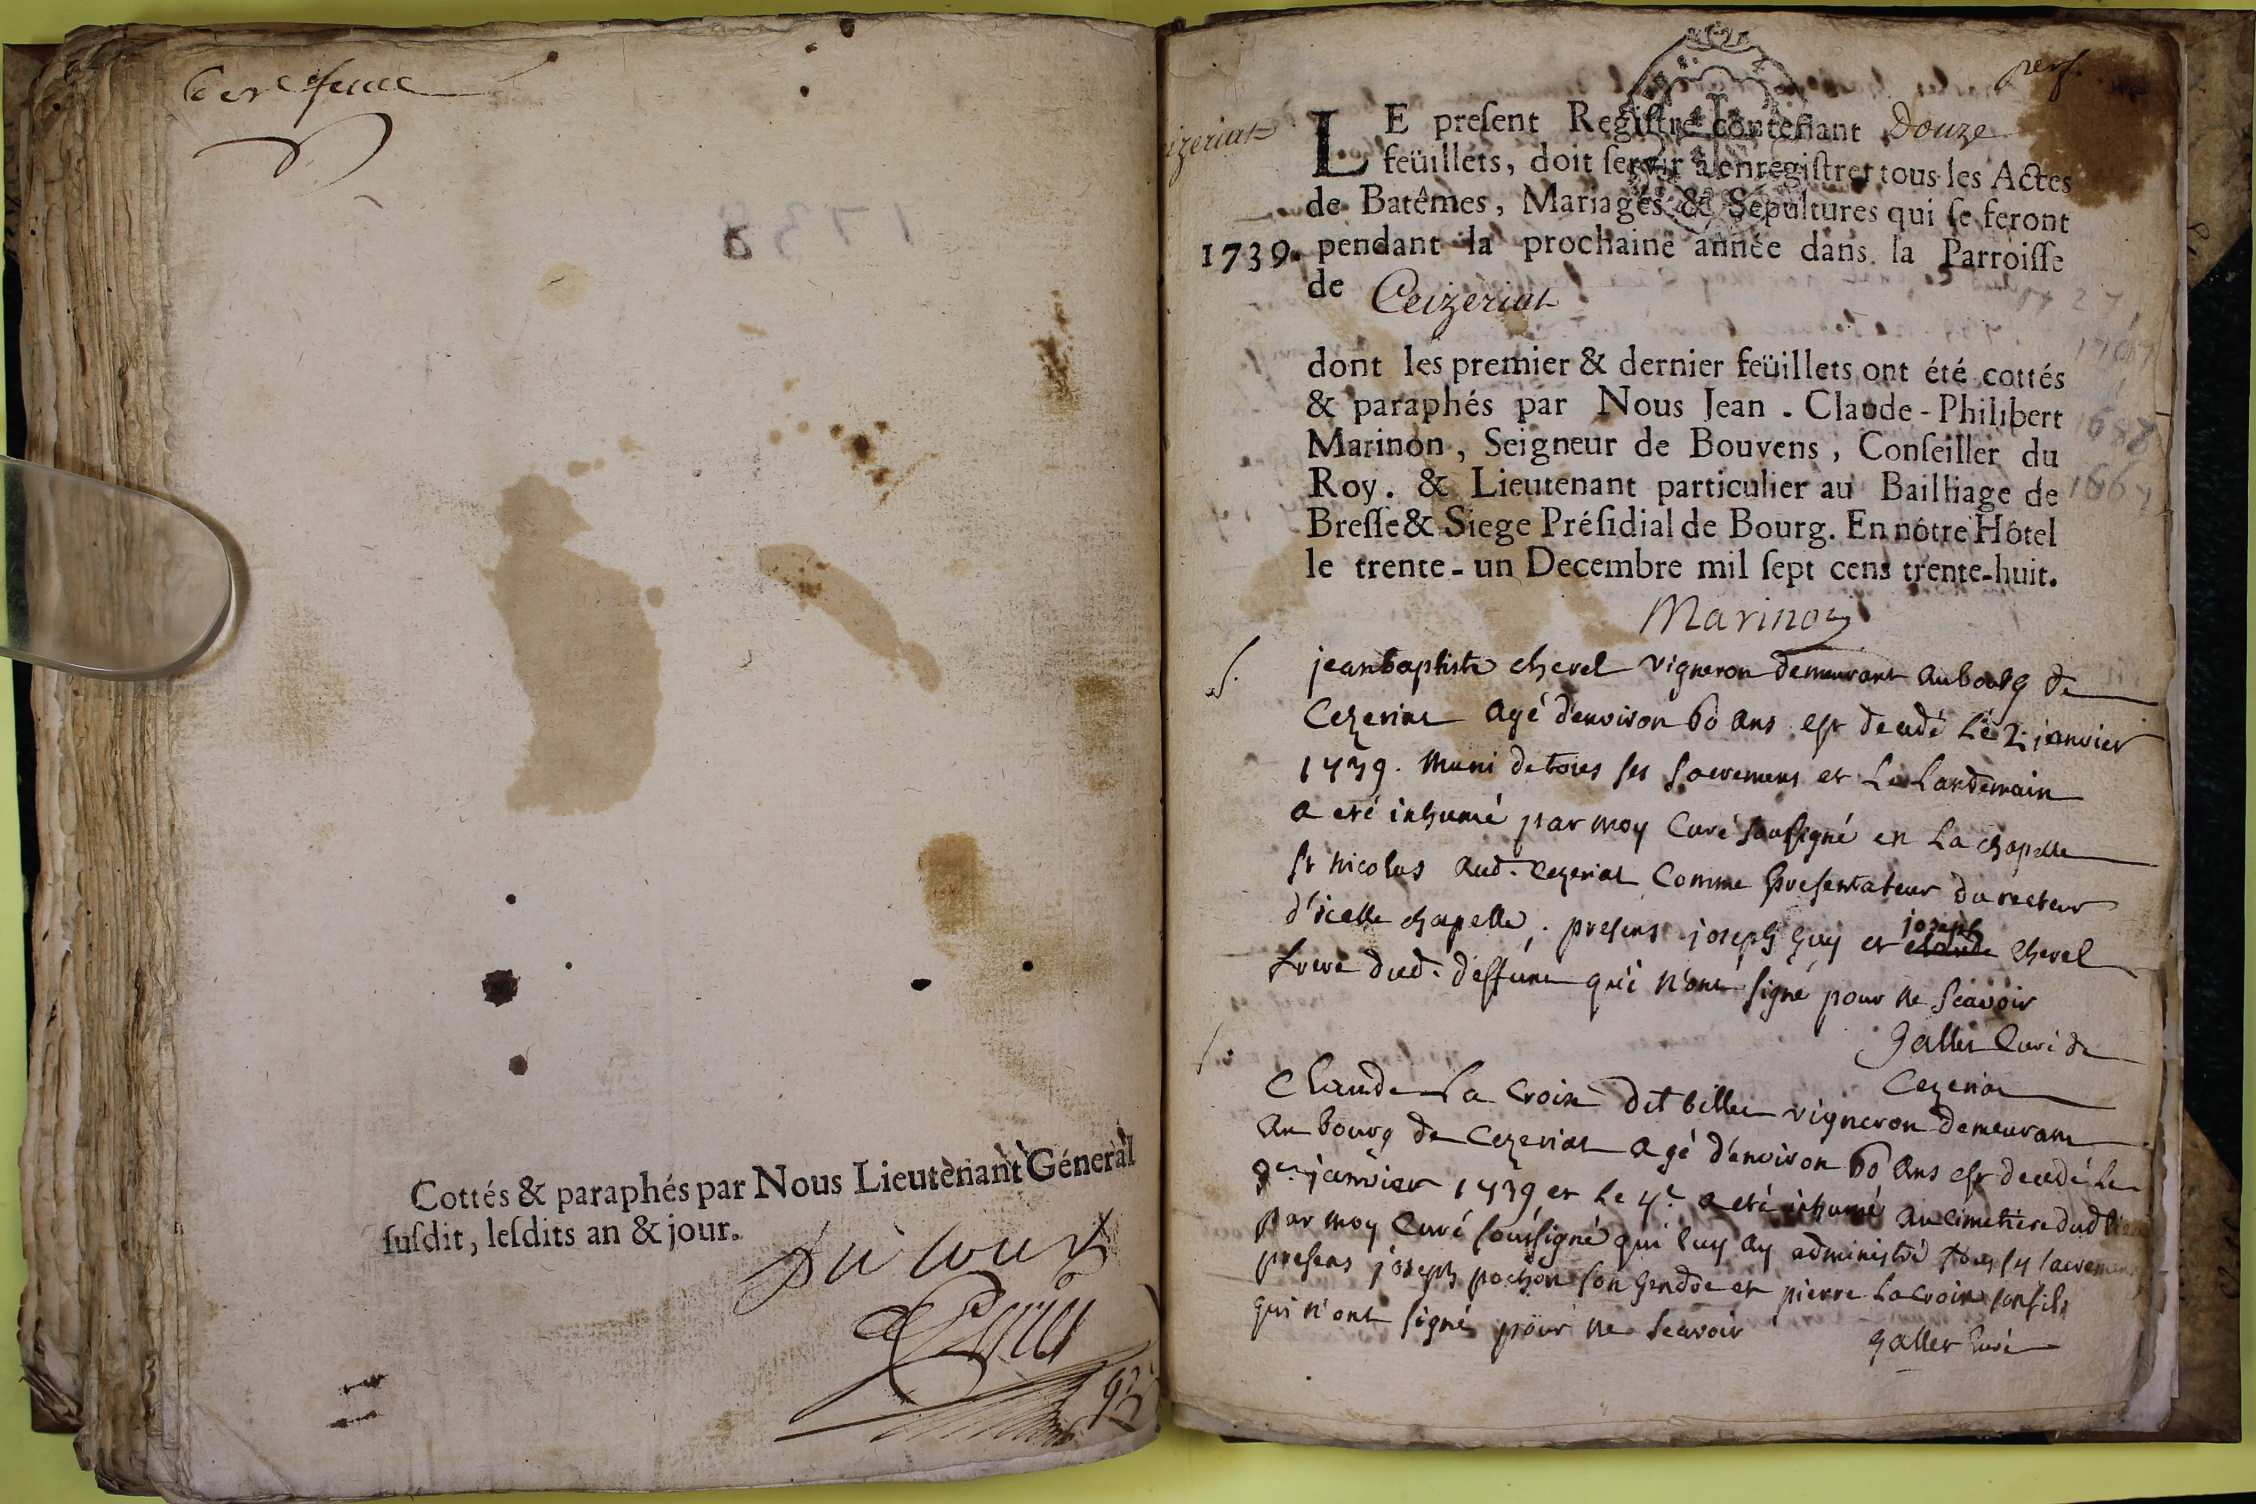 1738
Cottés & paraphés par Nous Lieutenant Géneral
susdit, lesdits an & jour.
Ceizeriat
LE present Registre contenant Douze
feüillets, doit servir à enregistrer tous les Actes
de Batêmes, Mariages & Sépultures qui se feront
1739. pendant la prochaine année dans la Parroisse
de Ceizeriat
dont les premier & dernier feüillets ont été cottés
& paraphés par Nous Jean-Claude-Philibert
Marinon, Seigneur de Bouvens, Conseiller du
Roy. & Lieutenant particulier au Bailliage de
Bresse & Siege Présidial de Bourg. En nôtre Hôtel
le trente-un Decembre mil sept cens trente-huit.
Marinon
S. jean baptiste chevel vigneron demeurant au bourg de
Cezeriat agé d'environ 60 ans est decedé Le 2 janvier
1739. muni de tous ses sacremens et Le Landemain
a eté inhumé par moy Curé soussigné en La chapelle
St nicolas aud. Cezeriat Comme presentateur du recteur
d'icelle chapelle. presens joseph Guy et joseph chevel
frere dud. deffunt qui n'ont signé pour ne scavoir
Galler Curé de
Cezeriat
Claude La Croix dit billet vigneron demeurant
au bourg de Cezeriat agé d'environ 60 ans est decedé Le
janvier 1739 et le 4e a eté inhumé au cimetiere dud lieu
par moy Curé soussigné qui luy ay administré tous ses sacremens
presens joseph pochon son gendre et pierre La croix son fils
qui n'ont signé pour ne scavoir
Galler Curé